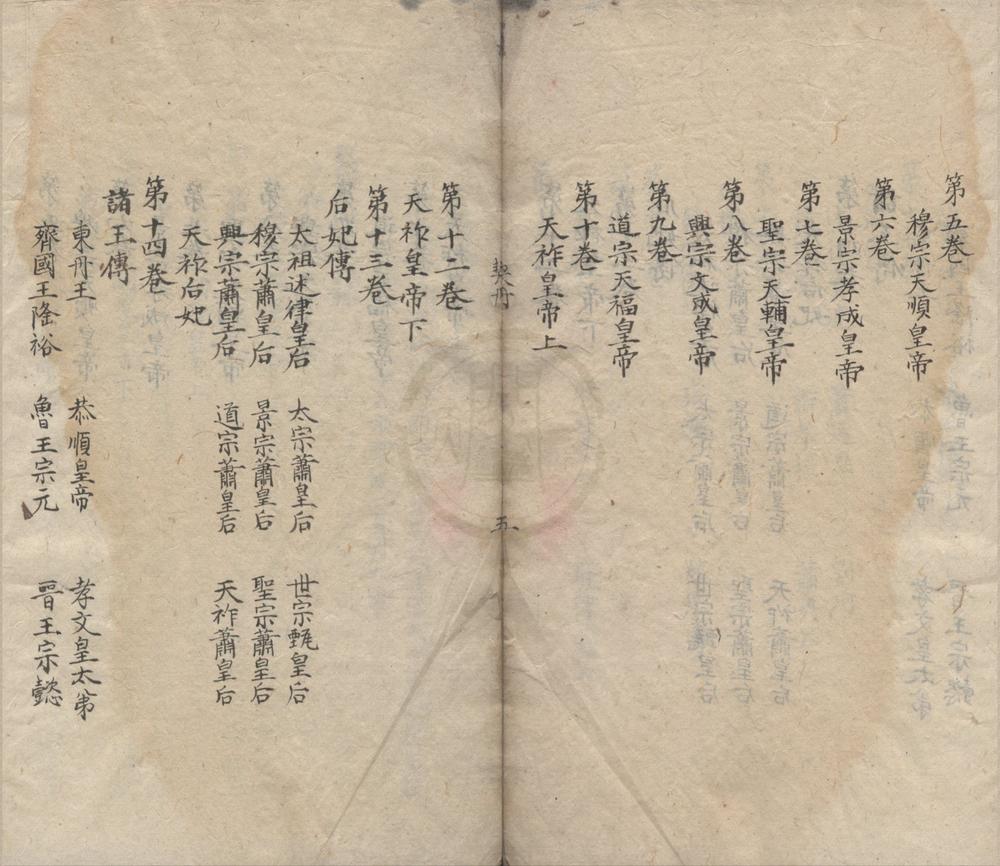 第五卷
穆宗天順皇帝
第六卷
景宗孝成皇帝
第七卷
聖宗天輔皇帝
第八卷
興宗文成皇帝
第九卷
道宗天福皇帝
第十卷
天祚皇帝上
契丹
五
第十二卷
天祚皇帝下
第十三卷
后妃傳
太祖述律皇后 太宗蕭皇后 世宗甄皇后
穆宗蕭皇后 景宗蕭皇后 聖宗蕭皇后
興宗蕭皇后 道宗蕭皇后 天祚蕭皇后
天祚后妃
第十四卷
諸王傳
東丹王 恭順皇帝 孝文皇太弟
齊國王隆裕 魯王宗元 晉王宗懿